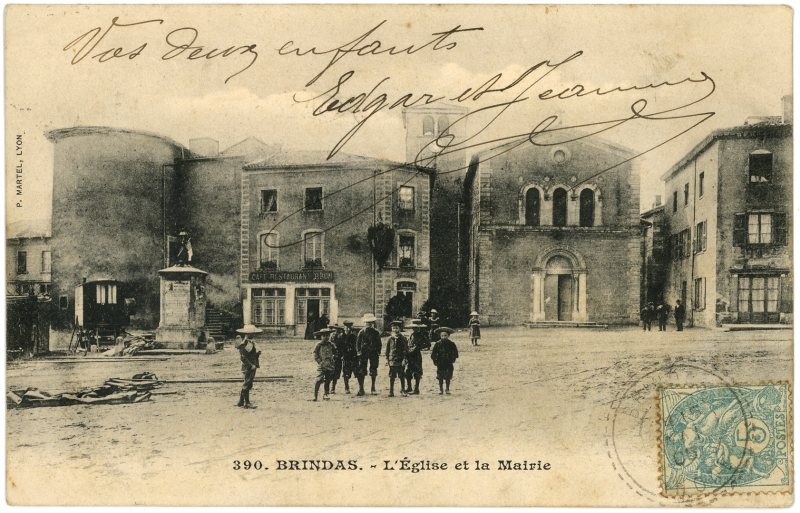 Vos deux enfants
Edgar et Jeanne
P. MARTEL, LYON.
CAFÉ RESTAURANT
390. BRINDAS. - L'Église et la Mairie
5
POSTES